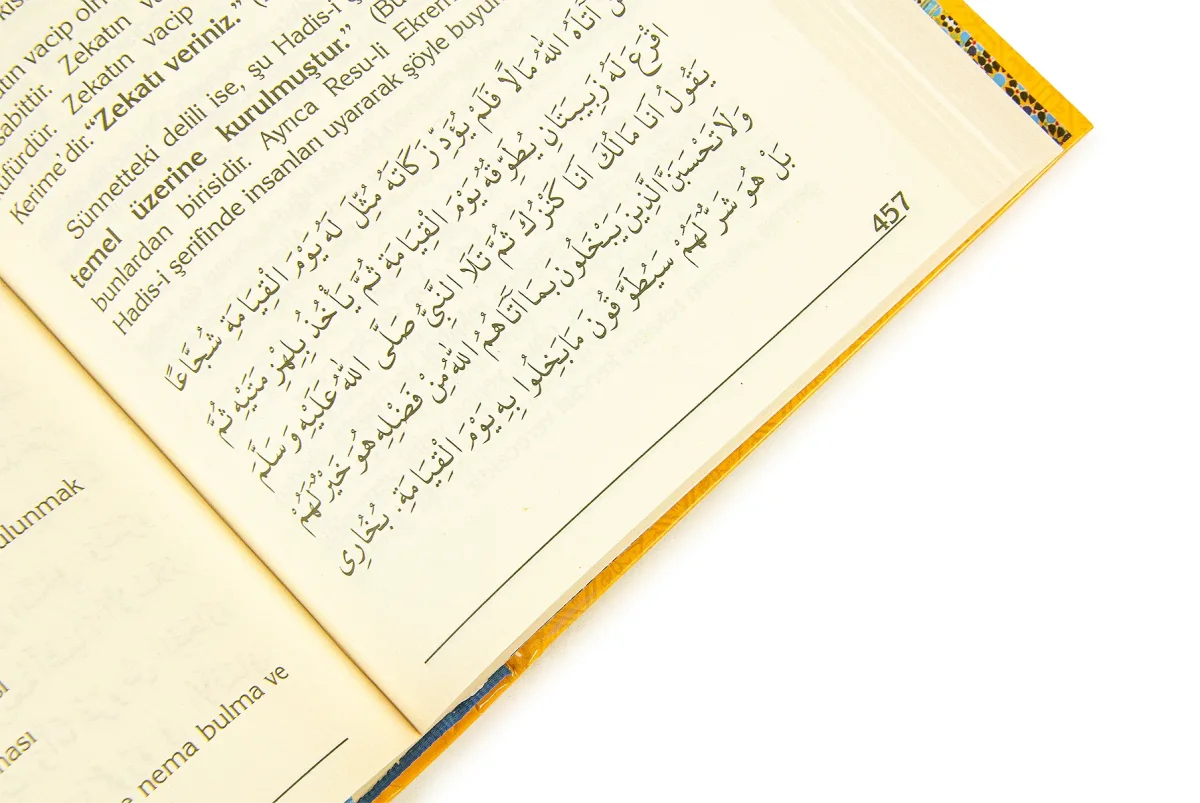 ulunmak
nema bulma ve
vacip olm
sabittir. Zekatın
küfürdür. Zekatın vacip
Kerime'dir. “Zekatı veriniz.”
Sünnetteki delili ise, şu Hadis-i ş
temel üzerine kurulmuştur.” (Bu
bunlardan birisidir. Ayrıca Resu-li Ekrem
Hadis-i şerifinde insanları uyararak şöyle buyu
آتَاهُ اللّٰهُ مَالًا فَلَمْ يُؤَدِّ زَكَاتَهُ مُثِّلَ لَهُ يَوْمَ الْقِيَامَةِ شُجَّاعًا
اَقْرَعَ لَهُ زَبِيبَتَانِ يُطَوَّقُهُ يَوْمَ الْقِيَامَةِ ثُمَّ يَأْخُذُ بِلِهْزِ مَتَيْهِ ثُمَّ
يَقُولُ اَنَا مَالُكَ اَنَا كَنْزُكَ ثُمَّ تَلَا النَّبِيُّ صَلَّى اللّٰهُ عَلَيْهِ وَسَلَّمَ
وَلَا تَحْسَبَنَّ الَّذِينَ يَبْخَلُونَ بِمَا آتَاهُمُ اللّٰهُ مِنْ فَضْلِهِ هُوَ خَيْرٌ لَهُمْ
بَلْ هُوَ شَرٌّ لَهُمْ سَيُطَوَّقُونَ مَا بَخِلُوا بِهِ يَوْمَ الْقِيَامَةِ. بُخَارِى
457